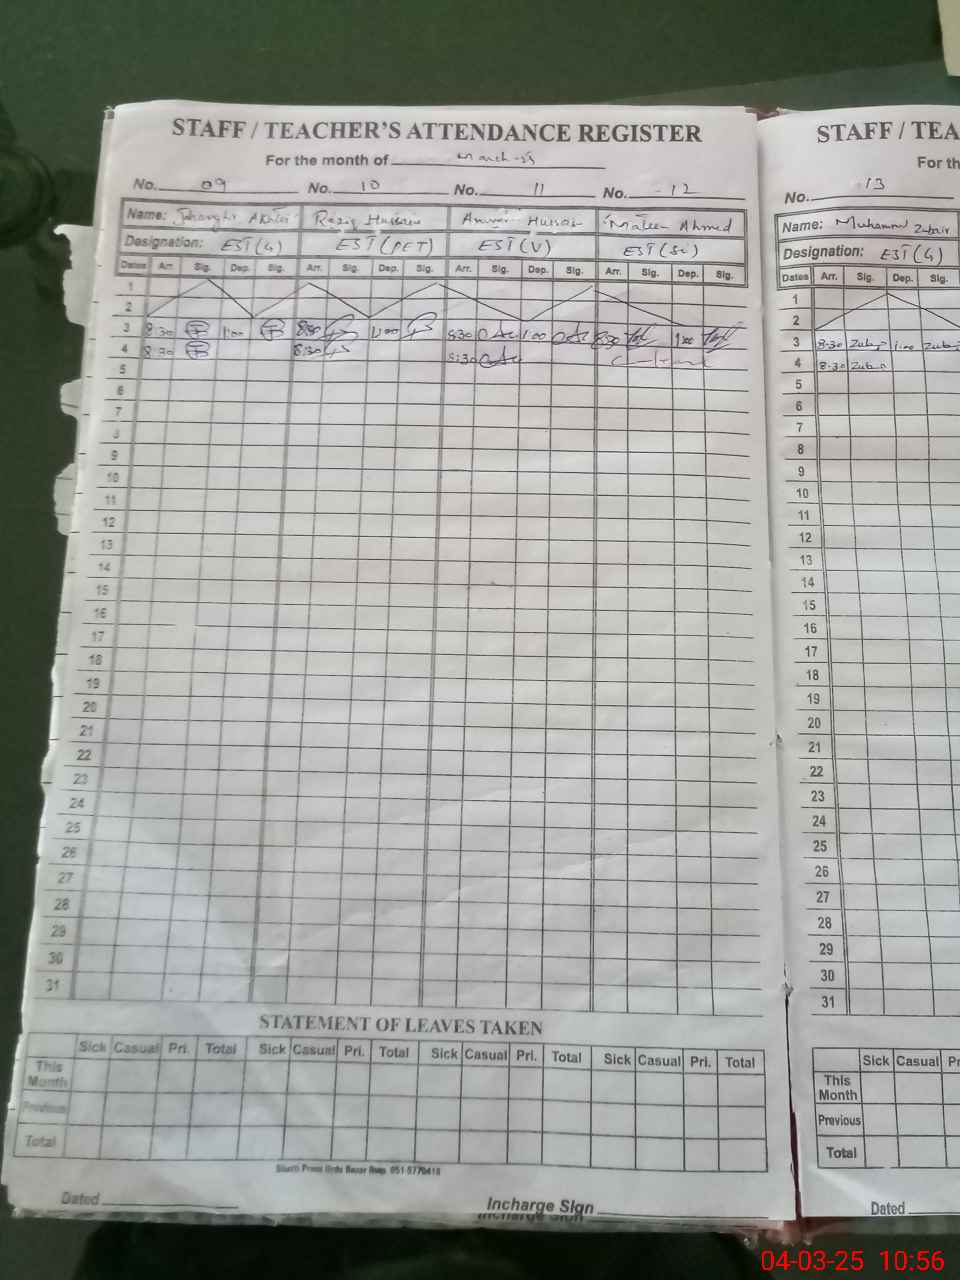 STAFF / TEACHER'S ATTENDANCE REGISTER
For the month of March-25
No. 09 No. 10 No. 11 No. 12
Name: Akhter Raziq Hussain Hussain Mateen Ahmed
Designation: EST(G) EST(PET) EST(V) EST(Sc)
Dates Arr. Sig. Dep. Sig. Arr. Sig. Dep. Sig. Arr. Sig. Dep. Sig. Arr. Sig. Dep. Sig.
1
2
3 8:30 1:00 8:30 1:00 8:30 1:00 8:30 1:00
4 8:30 8:30 8:30
5
6
7
8
9
10
11
12
13
14
15
16
17
18
19
20
21
22
23
24
25
26
27
28
29
30
31
STATEMENT OF LEAVES TAKEN
Sick Casual Pri. Total Sick Casual Pri. Total Sick Casual Pri. Total Sick Casual Pri. Total
This
Month
Previous
Total
Urdu Bazar 051-5770418
Dated
Incharge Sign
Incharge Sign
STAFF / TEA
For th
No. 13
Name: Muhammad Zubair
Designation: EST(G)
Dates Arr. Sig. Dep. Sig.
1
2
3 8:30 Zubair 1:00 Zubair
4 8:30 Zubair
5
6
7
8
9
10
11
12
13
14
15
16
17
18
19
20
21
22
23
24
25
26
27
28
29
30
31
Sick Casual Pr
This
Month
Previous
Total
Dated
04-03-25 10:56